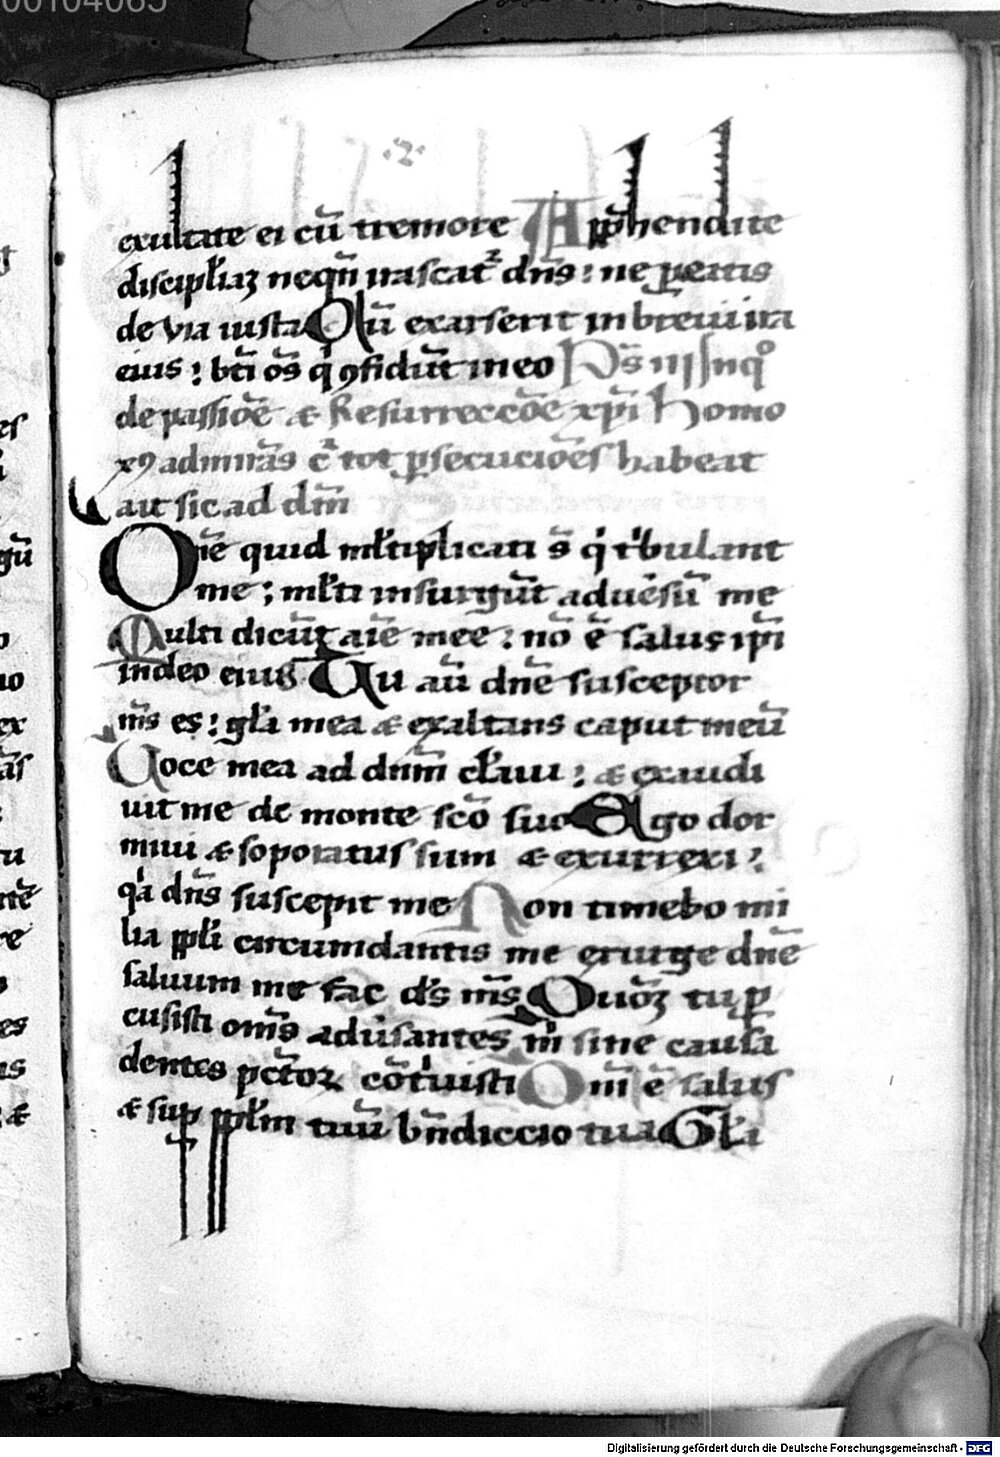 00104065
·2·
exultate ei cū tremore Appͬhendite
disciplīaꝫ neqn̄ irascat᷑ dn̄s : ne ꝑeatis
de via iusta Cū exarserit in breui ira
eius : bti oēs qͥ ꝯfidūt in eo Ps iij In qͦ
de passiōe ⁊ Resurreccōe xpi Homo
xꝯ admirās ꝙ tot ꝑsecucioēs habeat
ait sic ad dm̄
Dn̄e quid ml̄tiplicati sͭ qͥ tͥbulant
me ; ml̄ti insurgūt aduersū me
Multi dicūt aīe mee : nō ē salus ipi
in deo eius Tu aū dn̄e susceptor
ms̄ es : gl̄a mea ⁊ exaltans caput meū
Uoce mea ad dnm̄ cl̄aui : ⁊ exaudi
uit me de monte scō suo Ego dor
miui ⁊ soporatus sum ⁊ exurrexi :
qͥa dn̄s suscepit me Non timebo mi
lia ppl̄i circumdantis me exurge dn̄e
saluum me fac ds̄ ms̄ Quōꝫ tu ꝑ
cusisti om̄s adūsantes mͥ sine causa
dentes pctōꝝ cōtͥuisti Dnī ē salus
⁊ suꝑ ppl̄m tuū bn̄diccio tua Gl̄a
Digitalisierung gefördert durch die Deutsche Forschungsgemeinschaft - DFG